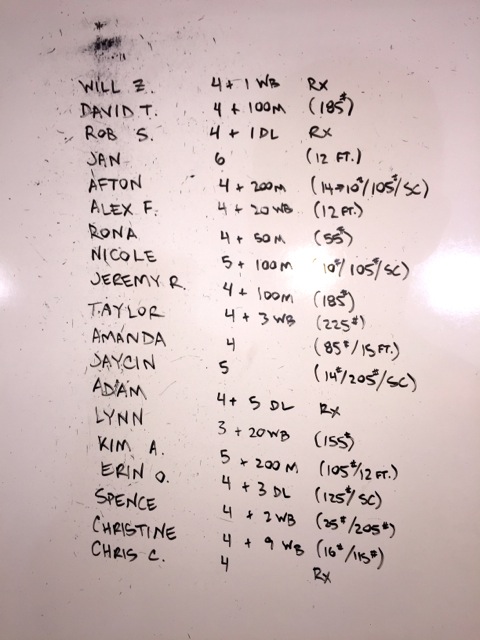 WILL Z. 4 + 1 WB Rx
DAVID T. 4 + 100M (185#)
ROB S. 4 + 1 DL Rx
JAN 6 (12 FT.)
AFTON 4 + 200M (14→10#/105#/SC)
ALEX F. 4 + 20 WB (12 FT.)
RONA 4 + 50M (55#)
NICOLE 5 + 100M (10#/105#/SC)
JEREMY R. 4 + 100M (185#)
TAYLOR 4 + 3 WB (225#)
AMANDA 4 (85#/15 FT.)
JAYCIN 5 (14#/205#/SC)
ADAM 4 + 5 DL Rx
LYNN 3 + 20 WB (155#)
KIM A. 5 + 200 M (105#/12 FT.)
ERIN O. 4 + 3 DL (125#/SC)
SPENCE 4 + 2 WB (25#/205#)
CHRISTINE 4 + 9 WB (16#/115#)
CHRIS C. 4 Rx